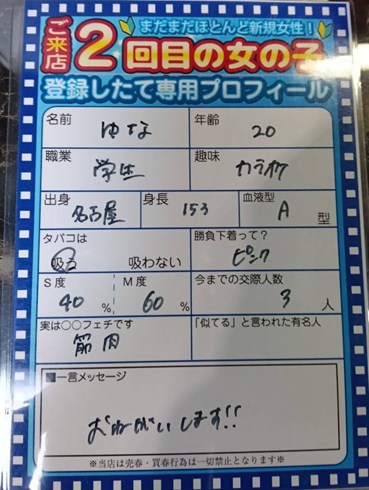 まだまだほとんど新規女性!
ご来店2回目の女の子
登録したて専用プロフィール
名前 ゆな 年齢 20
職業 学生 趣味 カラオケ
出身 名古屋 身長 153 血液型 A 型
タバコは 吸う 吸わない 勝負下着って? ピンク
S度 40 % M度 60 % 今までの交際人数 3 人
実は○○フェチです 筋肉 「似てる」と言われた有名人
■一言メッセージ
おねがいします!!
※当店は売春・買春行為は一切禁止となります※